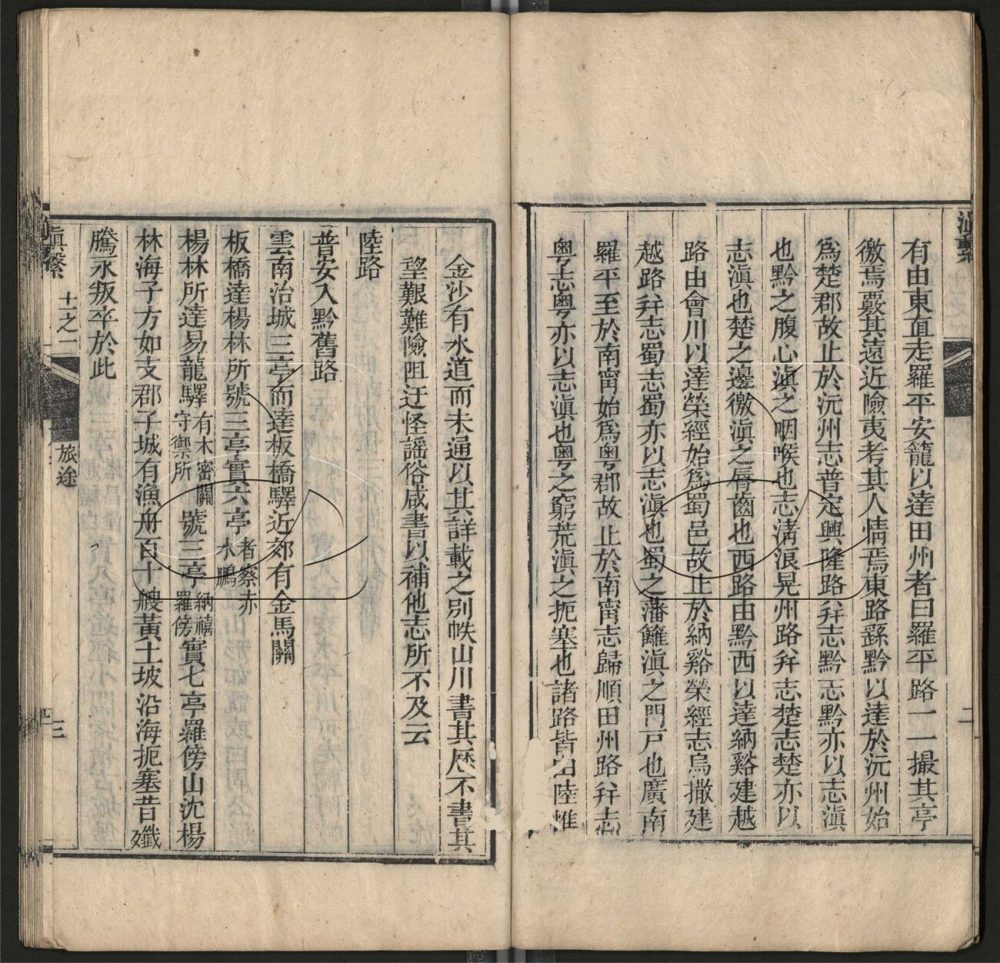 滇繫
有由東直走羅平安籠以達田州者曰羅平路一一撮其亭
徼焉覈其遠近險夷考其人情焉東路繇黔以達於沅州始
爲楚郡故止於沅州志普定興隆路幷志黔志黔亦以志滇
也黔之腹心滇之咽喉也志淸浪晃州路幷志楚志楚亦以
志滇也楚之邊徼滇之脣齒也西路由黔西以達納谿建越
路由會川以達榮經始爲蜀邑故止於納谿榮經志烏撒建
越路幷志蜀志蜀亦以志滇也蜀之藩籬滇之門戸也廣南
羅平至於南甯始爲粤郡故止於南甯志歸順田州路幷志
粤志粤亦以志滇也粤之窮荒滇之扼塞也諸路皆由陸惟
二
金沙有水道而未通以其詳載之別帙山川書其歷不書其
望艱難險阻迂怪謠俗咸書以補他志所不及云
陸路
普安入黔舊路
雲南治城三亭而達板橋驛近郊有金馬關
板橋達楊林所號三亭實六亭者察赤水鵬
楊林所達易龍驛有木密關守禦所號三亭納禧羅傍實七亭羅傍山沈楊
林海子方如支郡子城有漁舟百十艘黃土坡沿海扼塞昔殲
騰永叛卒於此
滇繫 十之二 旅途 三